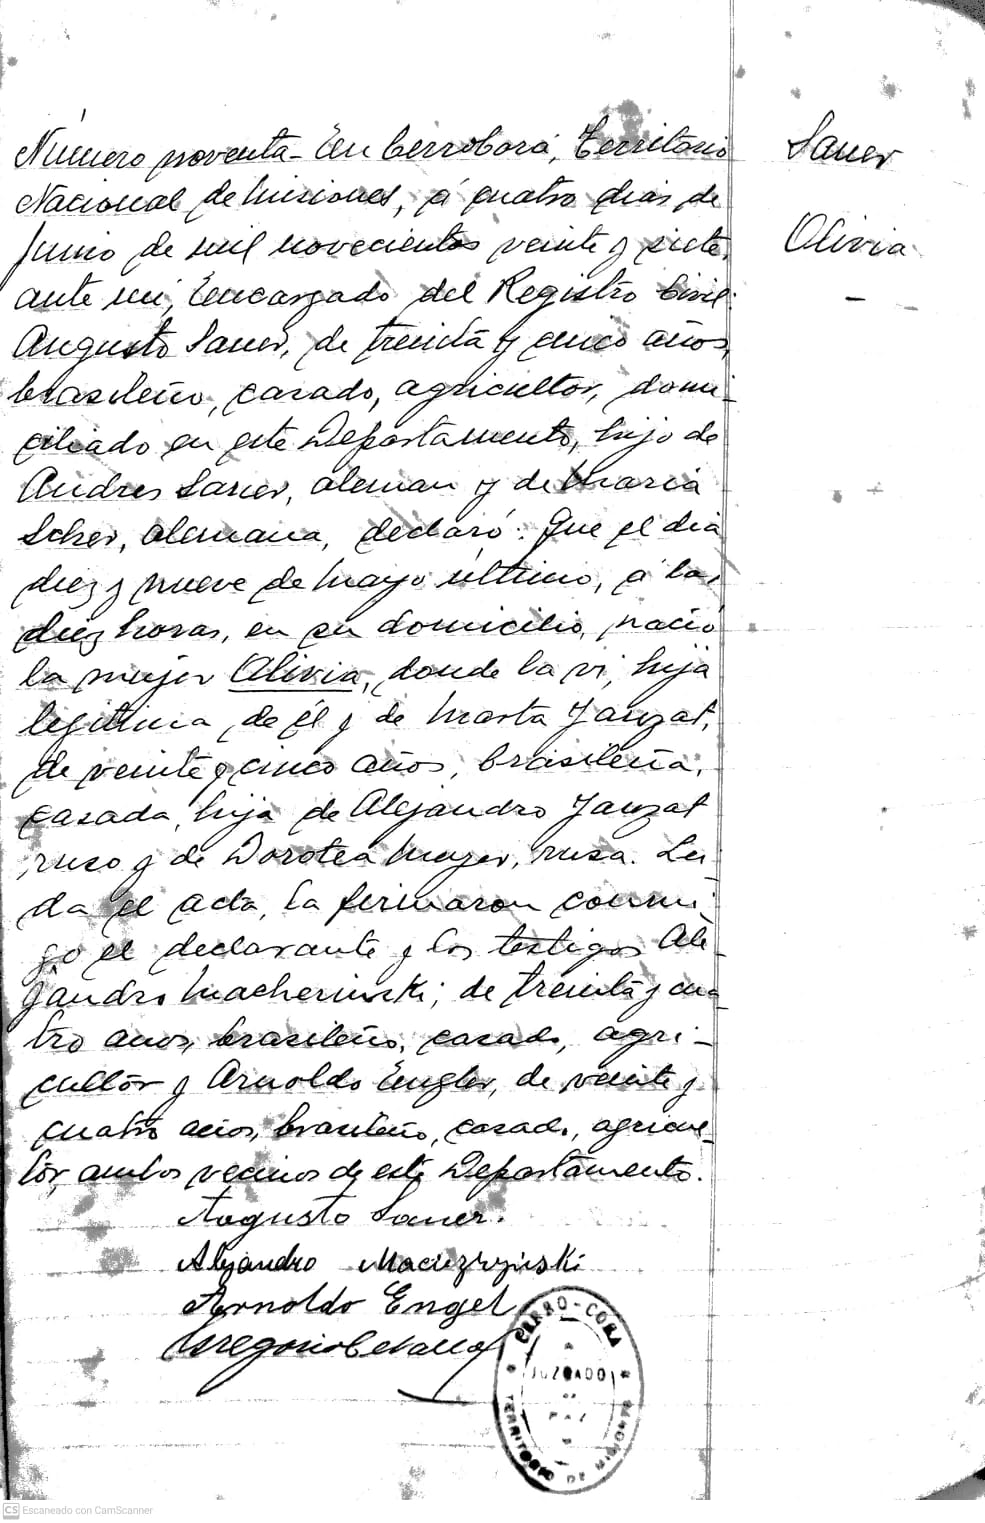 Número noventa - En Cerro Corá, Territorio
Nacional de Misiones, á cuatro dias de
Junio de mil novecientos veinte y siete,
ante mi, Encargado del Registro Civil:
Augusto Sauer, de treinta y cinco años,
brasileño, casado, agricultor, domi-
ciliado en este Departamento, hijo de
Andres Sauer, aleman y de Maria
Scher, alemana, declaró: Que el dia
diez y nueve de Mayo último, á las
diez horas, en su domicilio, nació
la mujer Olivia, donde la vi, hija
legitima de él y de Marta Janzat,
de veinte y cinco años, brasileña,
casada, hija de Alejandro Janzat
ruso y de Dorotea Mayer, rusa. Lei-
da el acta, la firmaron conmi-
go el declarante y los testigos Ale-
jandro de treinta y cua-
tro anos, brasileño, casado, agri-
cultor y Arnoldo Engler, de veinte y
cuatro años, brasileño, casado, agricul-
tor, ambos vecinos de este Departamento.
Augusto Sauer.
Alejandro
Arnoldo Engel
Gregorio
Sauer
Olivia
-
CERRO-CORA
JUZGADO
DE
PAZ
TERRITORIO DE MISIONES
CS Escaneado con CamScanner